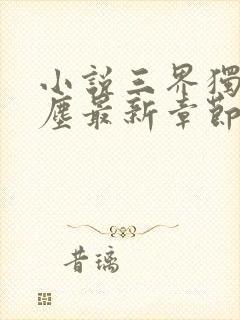 小說三界獨
塵最新章節
昔璃